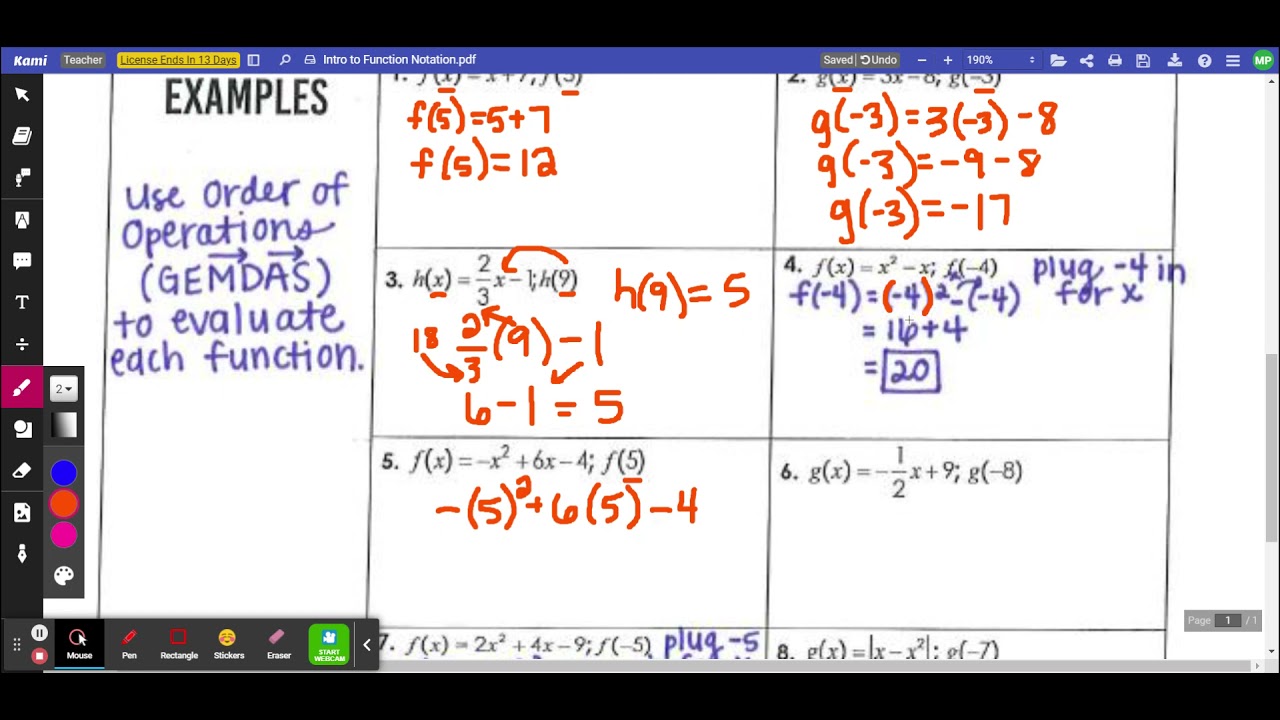 Kami Teacher License Ends In 13 Days Intro to Function Notation.pdf Saved Undo 190% MP
EXAMPLES
Use Order of
Operations
(GEMDAS)
to evaluate
each function.
1. f(x) = x + 7; f(5)
f(5) = 5 + 7
f(5) = 12
2. g(x) = 3x − 8; g(−3)
g(-3) = 3(-3) - 8
g(-3) = -9 - 8
g(-3) = -17
3. h(x) = 2/3 x − 1; h(9)
h(9) = 5
18 2/3 (9) - 1
6 - 1 = 5
4. f(x) = x² − x; f(−4)
plug -4 in
for x
f(-4) = (-4)² - (-4)
= 16 + 4
= 20
5. f(x) = −x² + 6x − 4; f(5)
-(5)² + 6(5) - 4
6. g(x) = −1/2 x + 9; g(−8)
7. f(x) = 2x² + 4x − 9; f(−5)
plug -5
8. g(x) = |x − x²|; g(−7)
2
T
A
Page 1 / 1
Mouse Pen Rectangle Stickers Eraser START WEBCAM